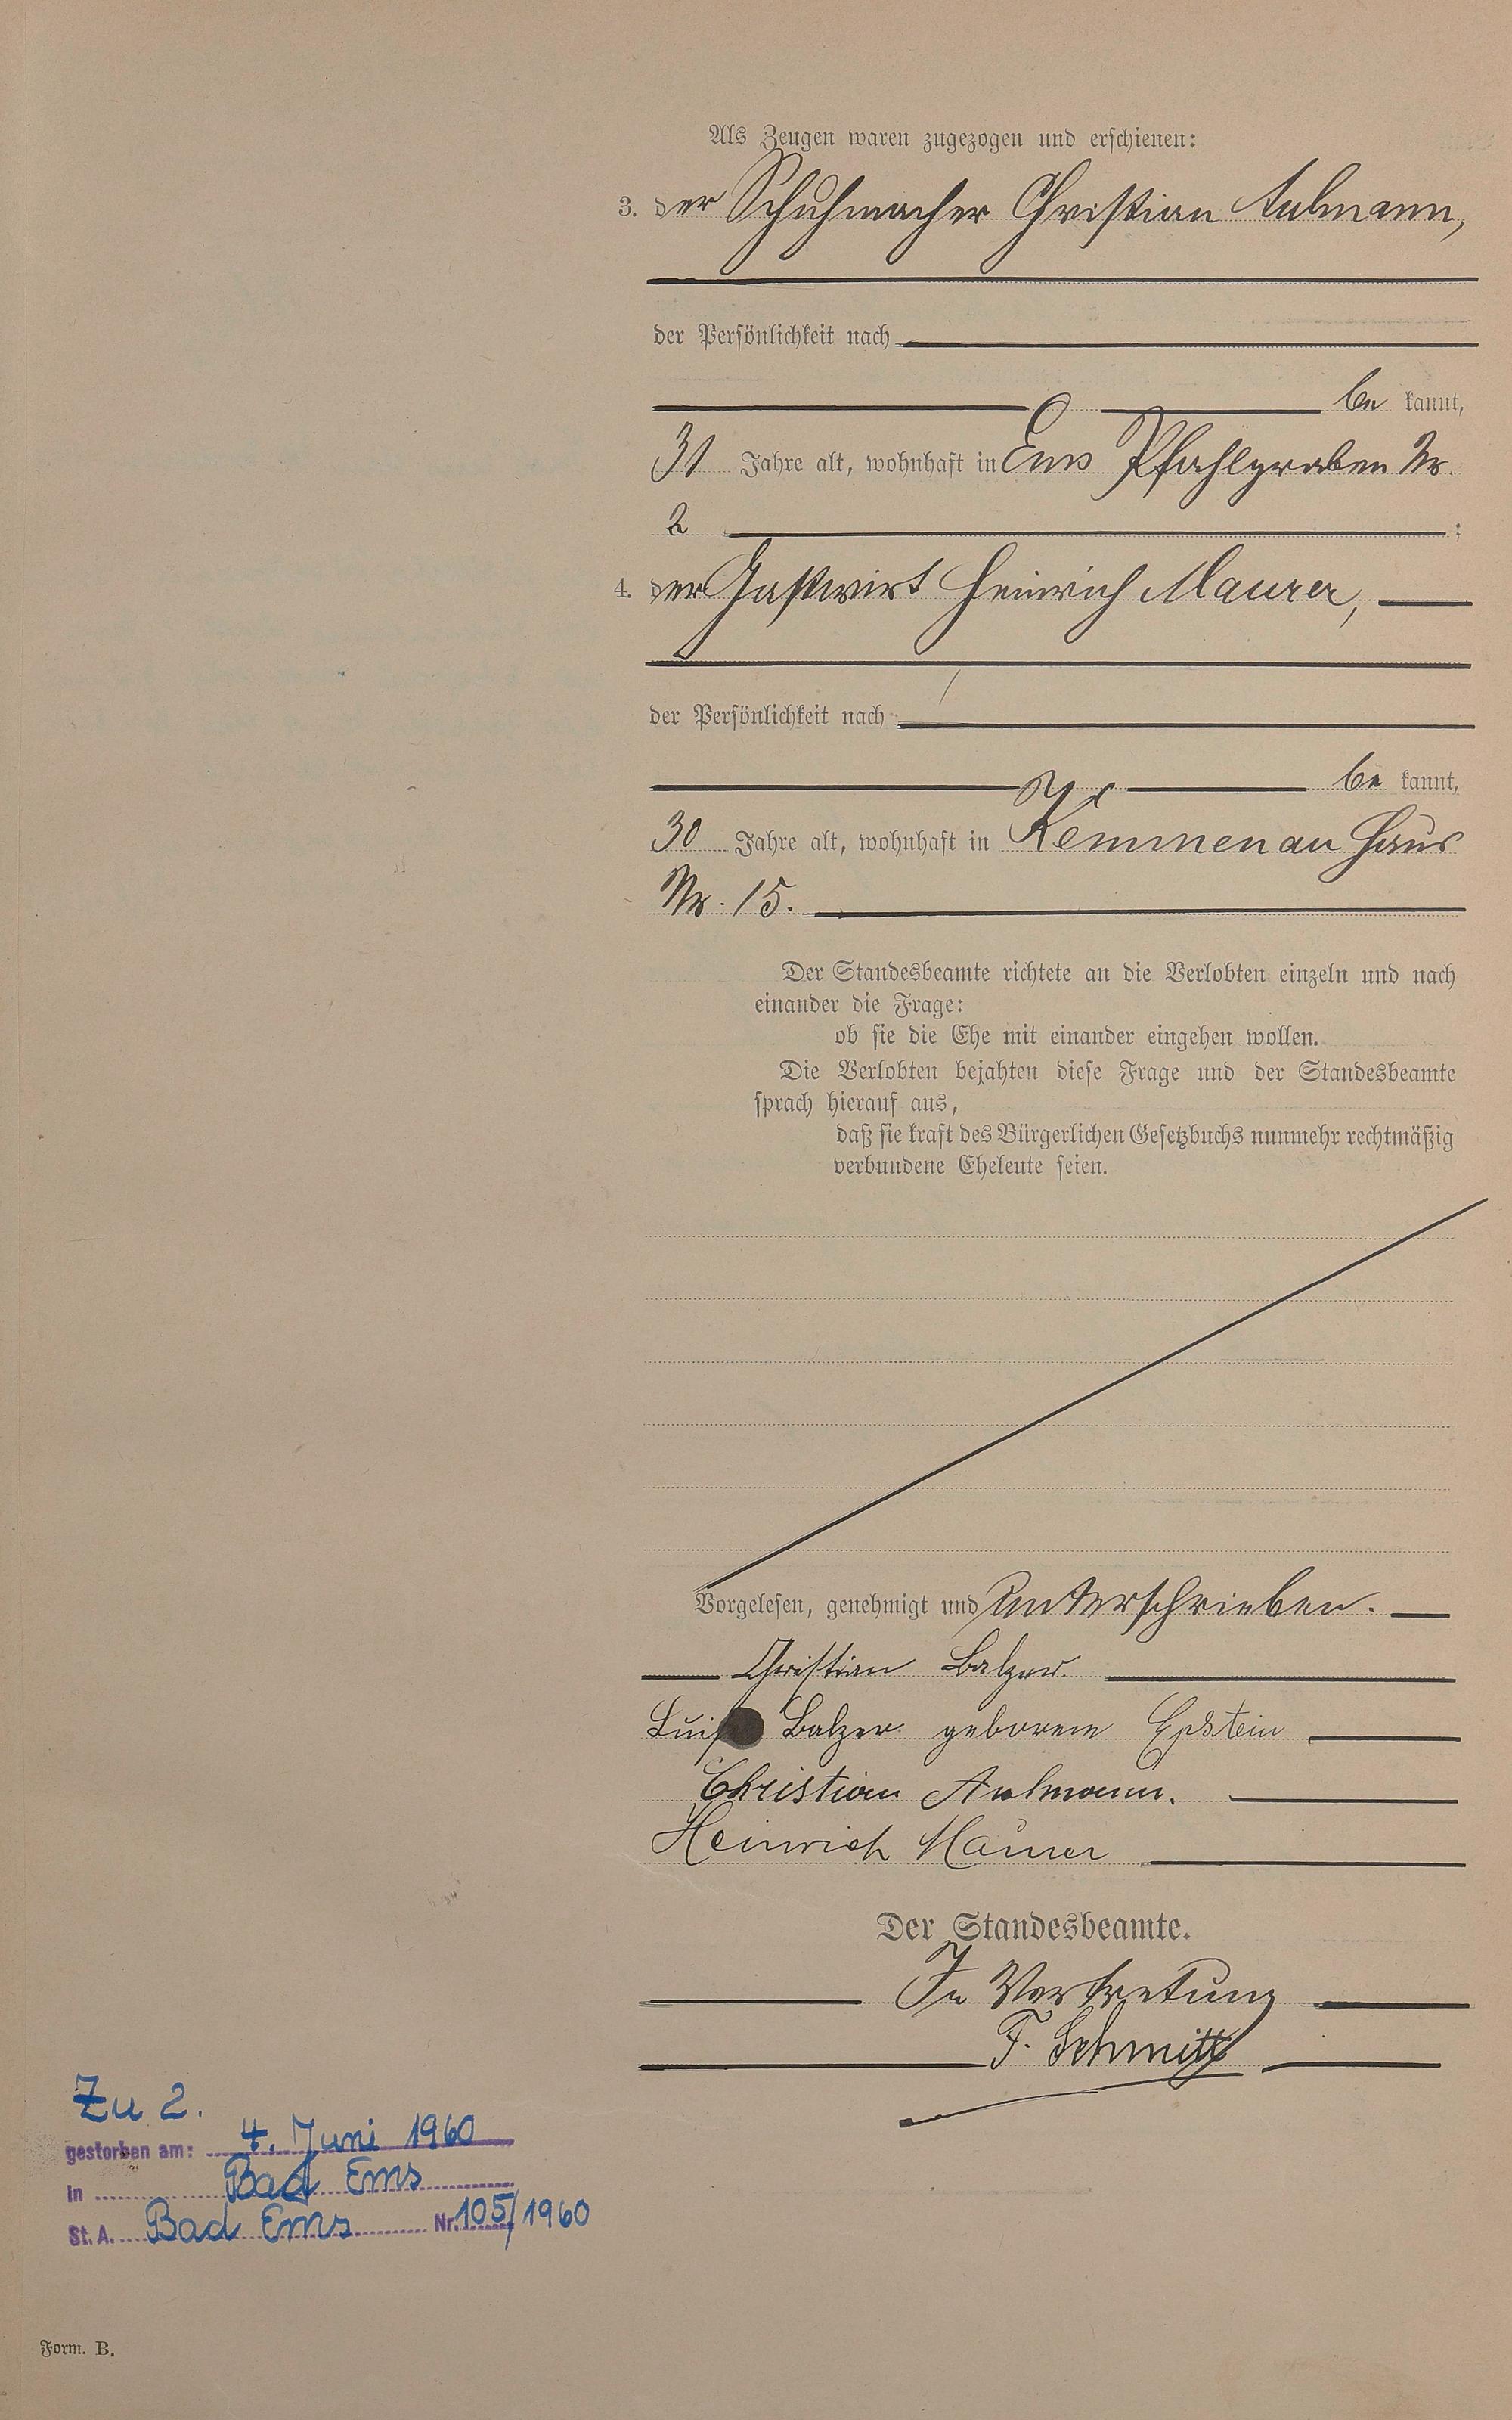 Als Zeugen waren zugezogen und erschienen:
3. der Schuhmacher Christian Aulmann,
der Persönlichkeit nach
be kannt,
31 Jahre alt, wohnhaft in Ems Pfahlgraben Nr.
2 ;
4. der Gastwirt Heinrich Maurer,
der Persönlichkeit nach
be kannt,
30 Jahre alt, wohnhaft in Kemmenau Haus
Nr. 15.
Der Standesbeamte richtete an die Verlobten einzeln und nach
einander die Frage:
ob sie die Ehe mit einander eingehen wollen.
Die Verlobten bejahten diese Frage und der Standesbeamte
sprach hierauf aus,
daß sie kraft des Bürgerlichen Gesetzbuchs nunmehr rechtmäßig
verbundene Eheleute seien.
Vorgelesen, genehmigt und unterschrieben.
Christian Balzer.
Luise Balzer geborene Epstein
Christian Aulmann.
Heinrich Maurer
Der Standesbeamte.
In Vertretung
F. Schmitt
Zu 2.
gestorben am: 4. Juni 1960
in Bad Ems
St. A. Bad Ems Nr. 105/1960
Form. B.